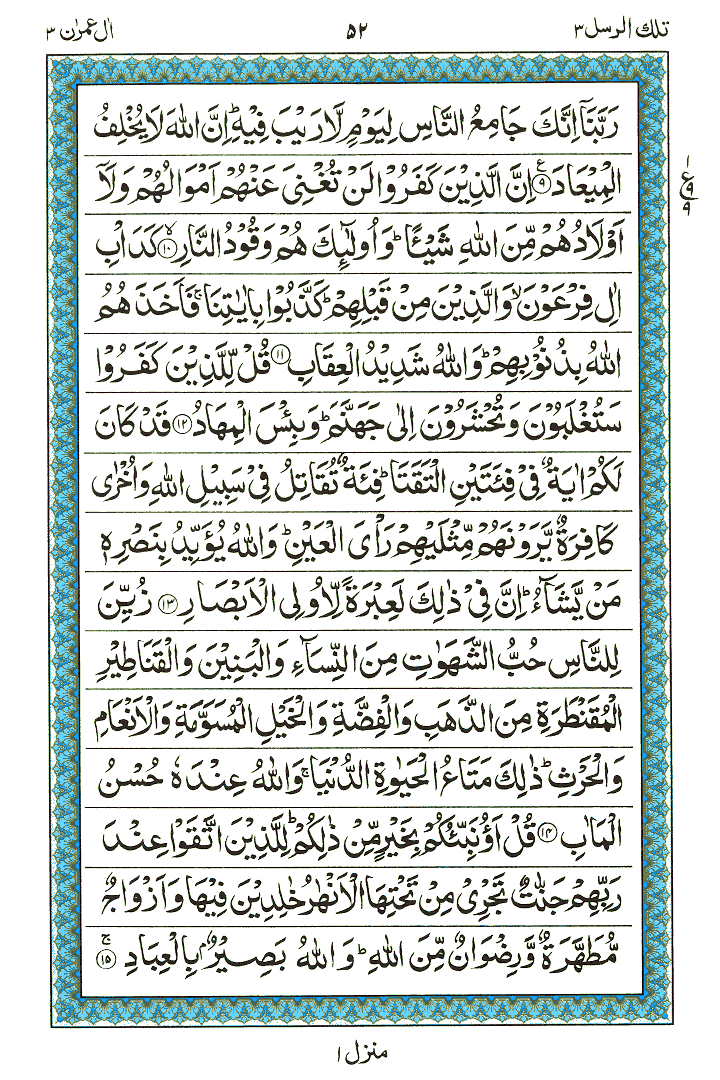 تلك الرسل ٣ ٥٢ اٰل عمرٰن ٣
رَبَّنَاۤ اِنَّكَ جَامِعُ النَّاسِ لِيَوْمٍ لَّا رَيْبَ فِيْهِ ؕ اِنَّ اللّٰهَ لَا يُخْلِفُ
الْمِيْعَادَ ۹ اِنَّ الَّذِيْنَ كَفَرُوْا لَنْ تُغْنِىَ عَنْهُمْ اَمْوَالُهُمْ وَلَاۤ
اَوْلَادُهُمْ مِّنَ اللّٰهِ شَيْـًٔا ؕ وَاُولٰٓئِكَ هُمْ وَقُوْدُ النَّارِ ۱۰ كَدَاْبِ
اٰلِ فِرْعَوْنَ ۙ وَالَّذِيْنَ مِنْ قَبْلِهِمْ ؕ كَذَّبُوْا بِاٰيٰتِنَا ۚ فَاَخَذَهُمُ
اللّٰهُ بِذُنُوْبِهِمْ ؕ وَاللّٰهُ شَدِيْدُ الْعِقَابِ ۱۱ قُلْ لِّلَّذِيْنَ كَفَرُوْا
سَتُغْلَبُوْنَ وَتُحْشَرُوْنَ اِلٰى جَهَنَّمَ ؕ وَبِئْسَ الْمِهَادُ ۱۲ قَدْ كَانَ
لَكُمْ اٰيَةٌ فِىْ فِئَتَيْنِ الْتَقَتَا ؕ فِئَةٌ تُقَاتِلُ فِىْ سَبِيْلِ اللّٰهِ وَاُخْرٰى
كَافِرَةٌ يَّرَوْنَهُمْ مِّثْلَيْهِمْ رَاْىَ الْعَيْنِ ؕ وَاللّٰهُ يُؤَيِّدُ بِنَصْرِهٖ
مَنْ يَّشَآءُ ؕ اِنَّ فِىْ ذٰلِكَ لَعِبْرَةً لِّاُولِى الْاَبْصَارِ ۱۳ زُيِّنَ
لِلنَّاسِ حُبُّ الشَّهَوٰتِ مِنَ النِّسَآءِ وَالْبَنِيْنَ وَالْقَنَاطِيْرِ
الْمُقَنْطَرَةِ مِنَ الذَّهَبِ وَالْفِضَّةِ وَالْخَيْلِ الْمُسَوَّمَةِ وَالْاَنْعَامِ
وَالْحَرْثِ ؕ ذٰلِكَ مَتَاعُ الْحَيٰوةِ الدُّنْيَا ۚ وَاللّٰهُ عِنْدَهٗ حُسْنُ
الْمَاٰبِ ۱۴ قُلْ اَؤُنَبِّئُكُمْ بِخَيْرٍ مِّنْ ذٰلِكُمْ ؕ لِلَّذِيْنَ اتَّقَوْا عِنْدَ
رَبِّهِمْ جَنّٰتٌ تَجْرِىْ مِنْ تَحْتِهَا الْاَنْهٰرُ خٰلِدِيْنَ فِيْهَا وَاَزْوَاجٌ
مُّطَهَّرَةٌ وَّرِضْوَانٌ مِّنَ اللّٰهِ ؕ وَاللّٰهُ بَصِيْرٌۢ بِالْعِبَادِ ۱۵
منزل ١